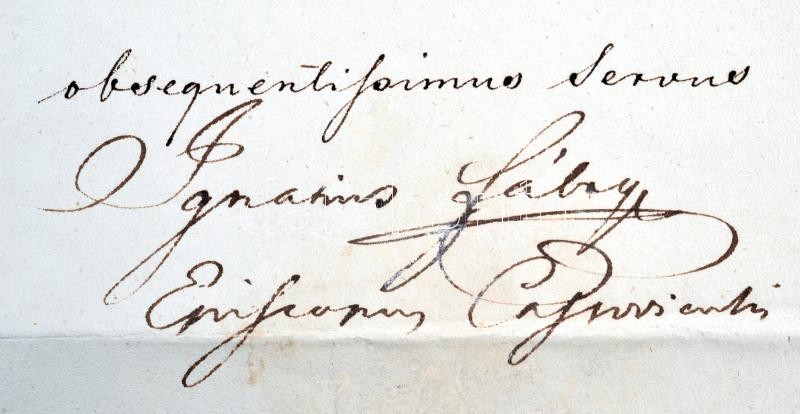 obsequentissimus servus
Ignatius Fábry
Episcopus Cassoviensis